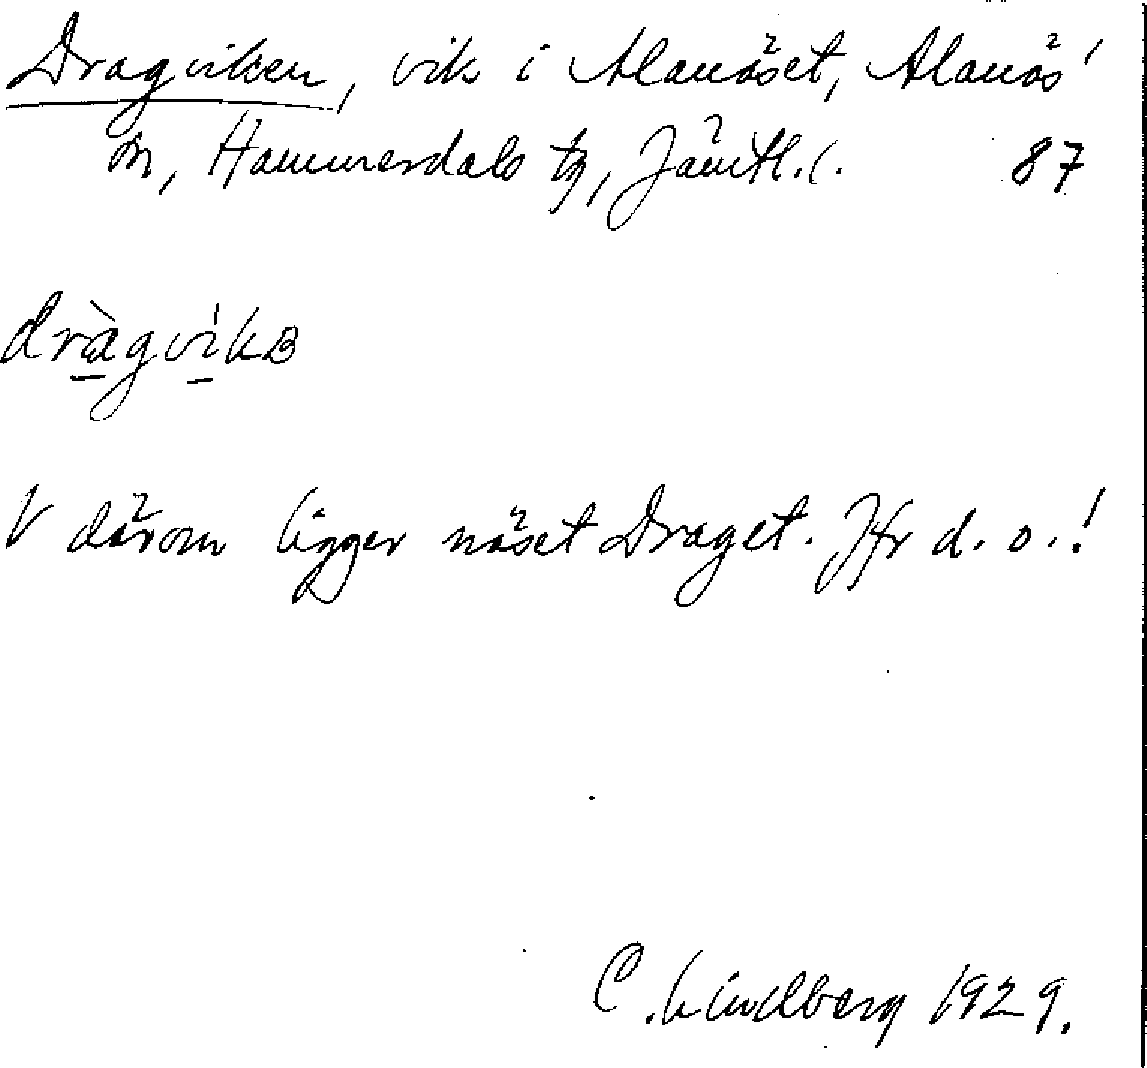 Dragviken, vik i Alanäset, Alanäs
sn, Hammerdals tg, Jämtl. l. 87
dràgvikɞ
V därom ligger näset Draget. Jfr d. o.!
C. Lindberg 1929.